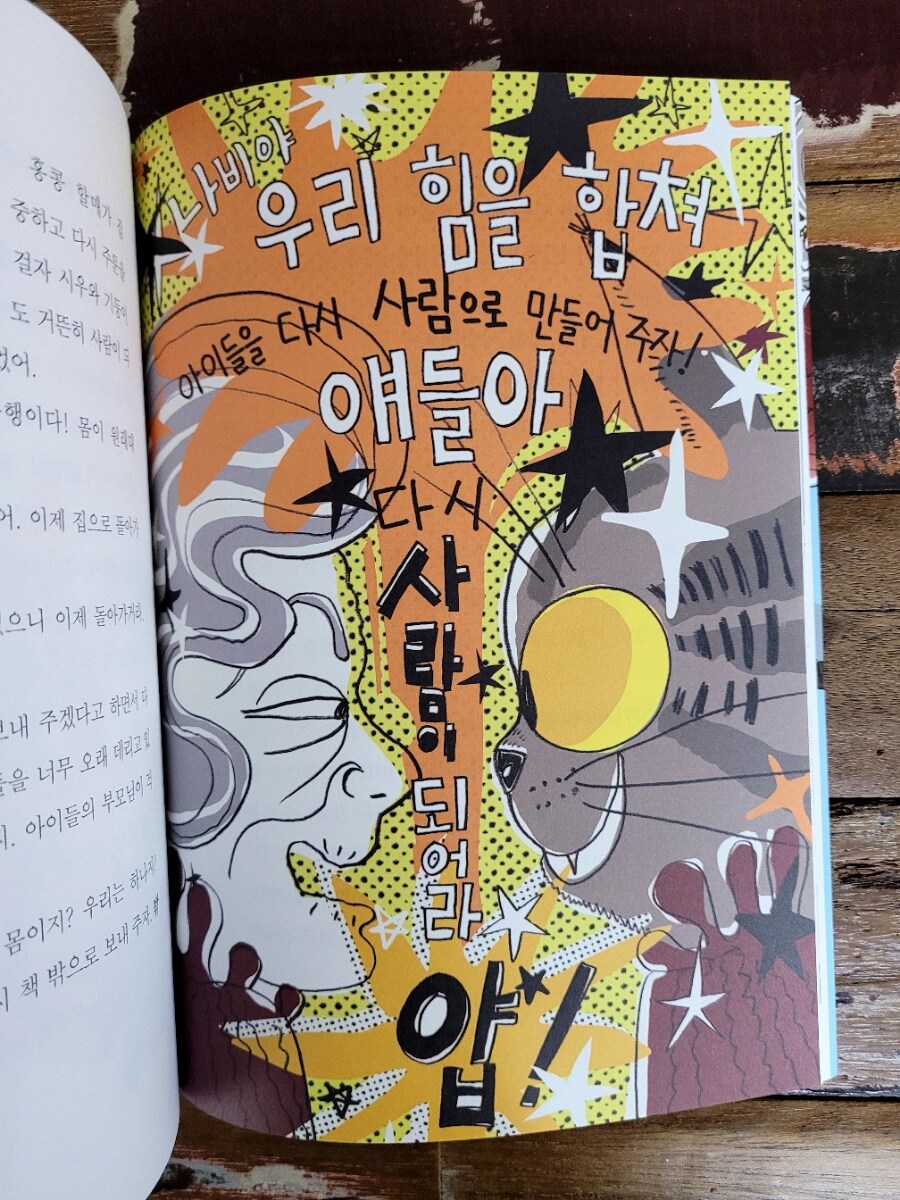 홍콩 할매가 집
중하고 다시 주문을
결자 시우와 기둥이
도 거뜬히 사람이 되
었어.
행이다! 몸이 원래대
어. 이제 집으로 돌아가
있으니 이제 돌아가거라.
보내 주겠다고 하면서 다
들을 너무 오래 데리고 있
시. 아이들의 부모님이 걱
몸이지? 우리는 하나지!
시 책 밖으로 보내 주자.
나비야
우리 힘을 합쳐
아이들을 다시 사람으로 만들어 주자!
얘들아
다시
사람이
되어라
얍!